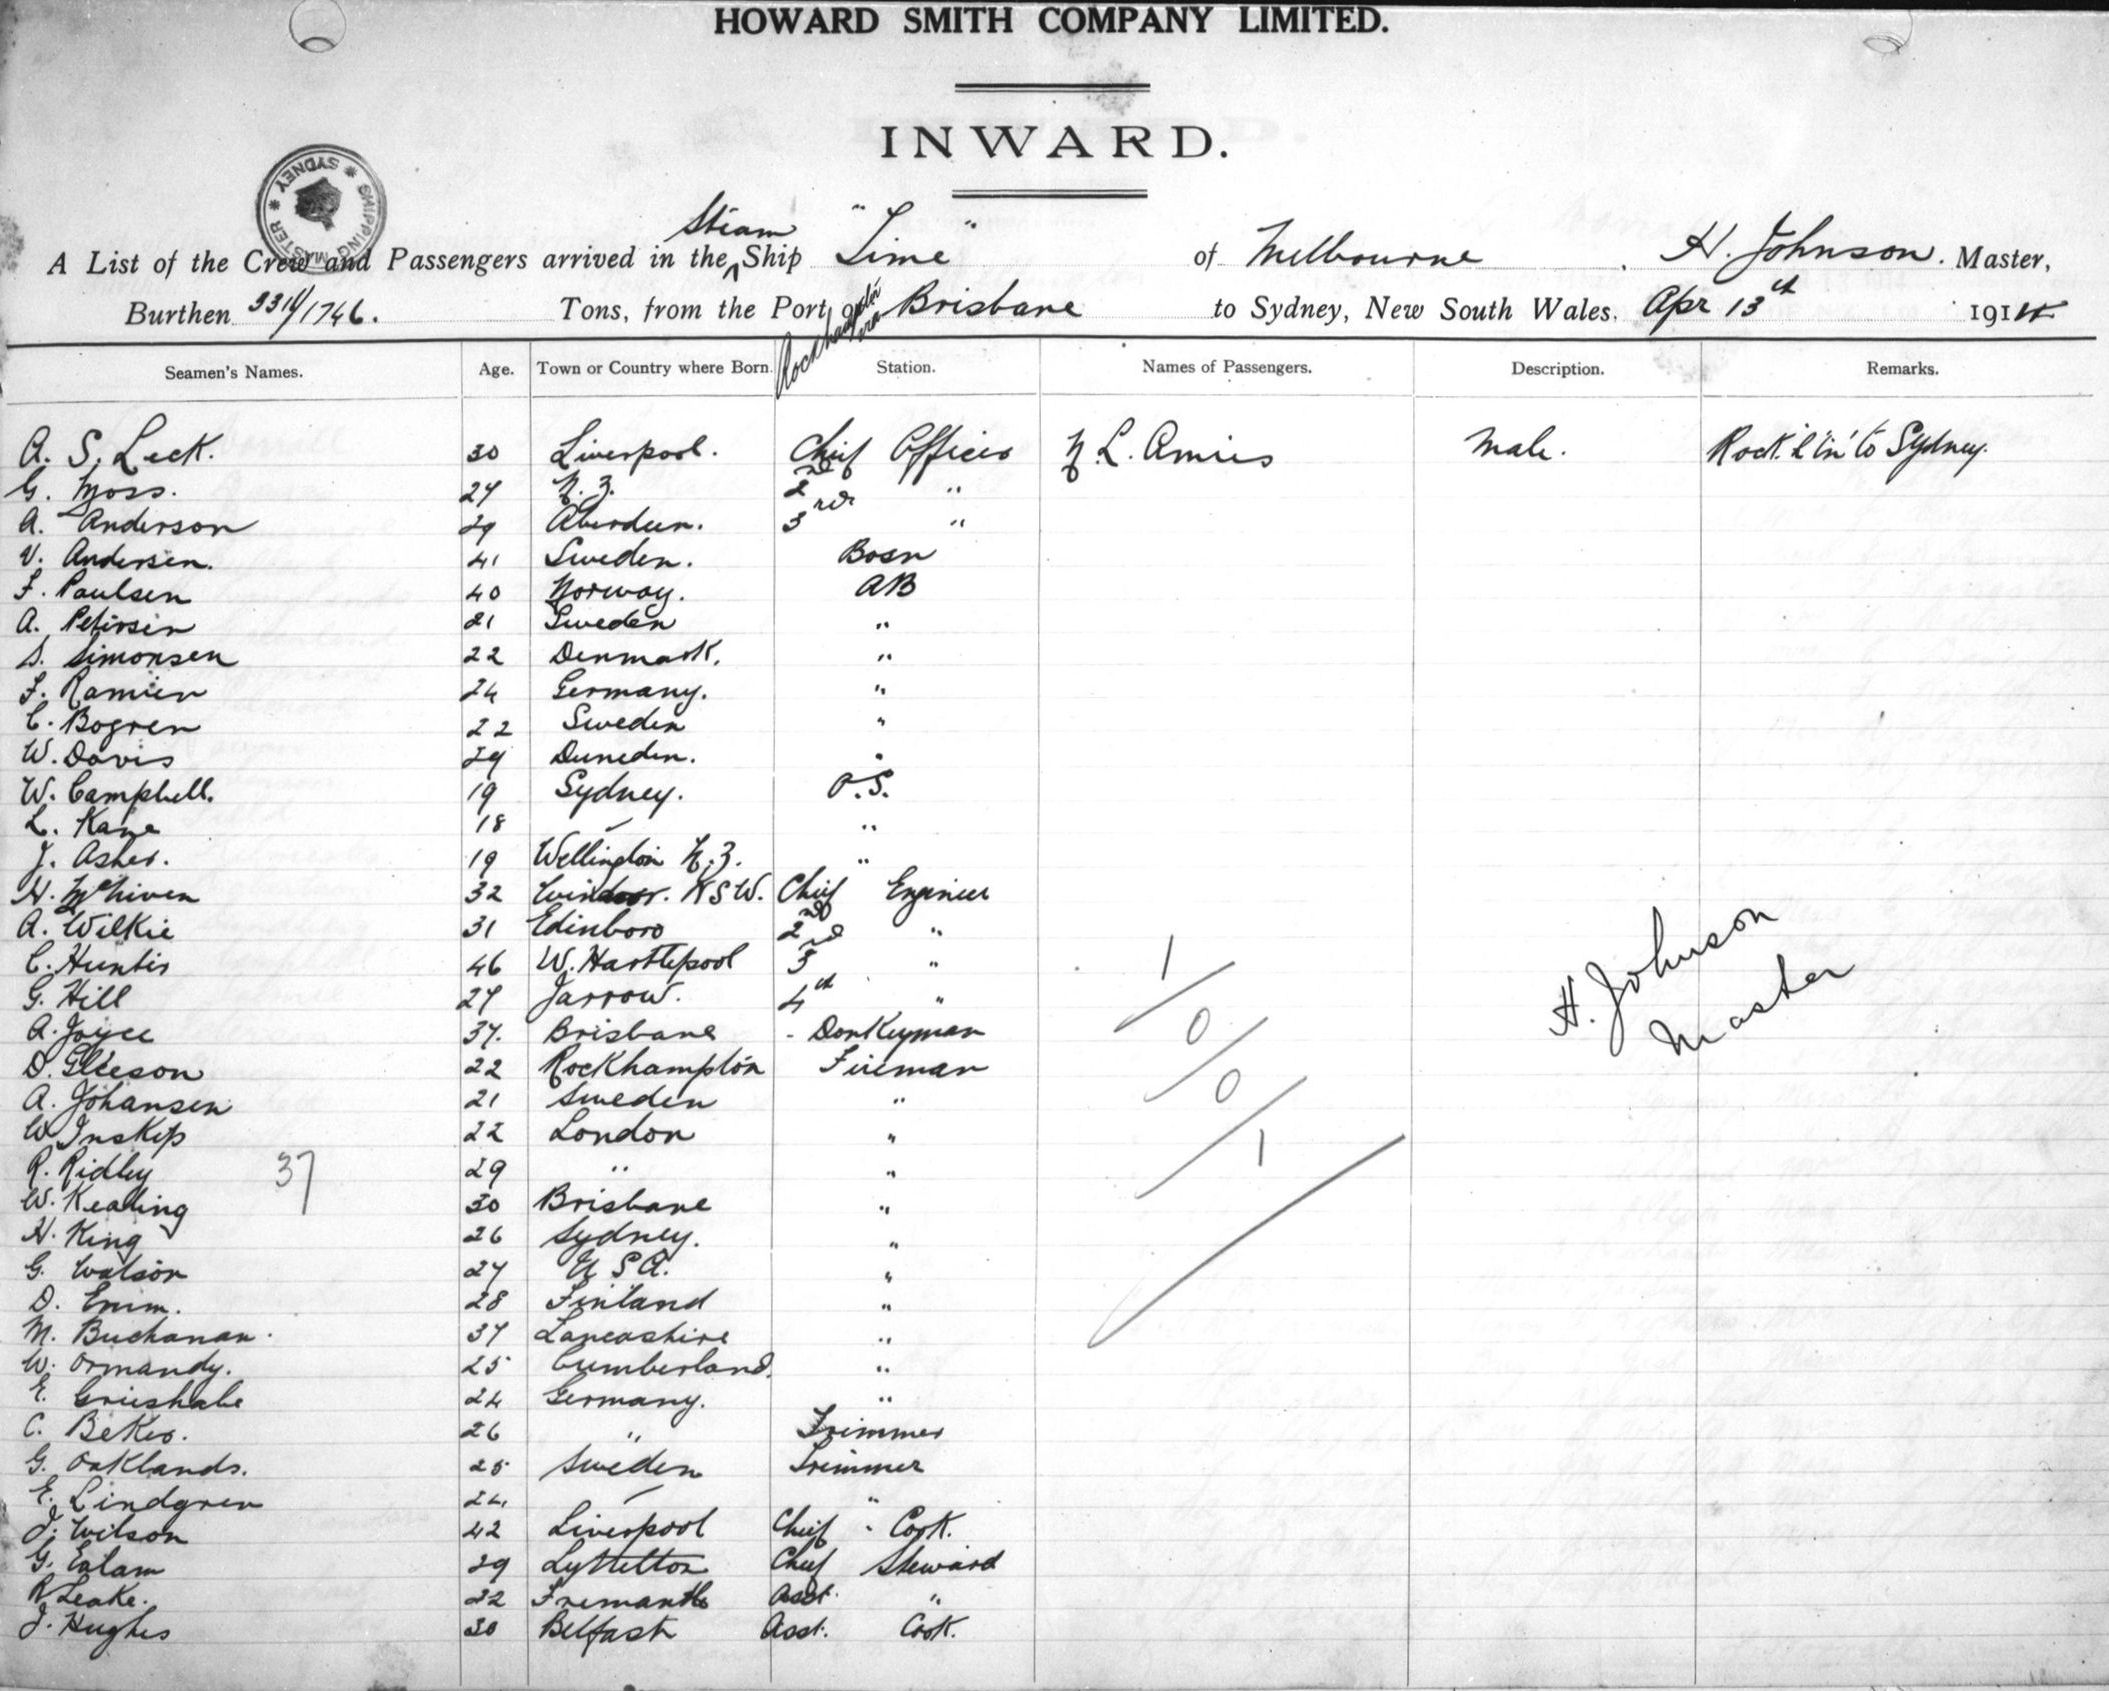 HOWARD SMITH COMPANY LIMITED.
INWARD.
SHIPPING MASTER * SYDNEY *
Steam
A List of the Crew and Passengers arrived in the Ship "Time" of Melbourne, H. Johnson. Master,
Burthen 3311/1746. Tons, from the Port of Rockhampton via Brisbane to Sydney, New South Wales. Apr 13th 1914
Seamen's Names. Age. Town or Country where Born. Station. Names of Passengers. Description. Remarks.
A. S. Leck. 30 Liverpool. Chief Officer N. L. Amies Male. Rock'h'tn' to Sydney.
G. Moss. 27 N. Z. 2nd "
A. Anderson 29 Aberdeen. 3rd "
V. Andersen. 41 Sweden. Bosn
F. Paulsen 40 Norway. AB
A. Petersen 21 Sweden "
S. Simonsen 22 Denmark. "
F. Ramien 24 Germany. "
C. Bogren 22 Sweden "
W. Davis 29 Dunedin. "
W. Campbell. 19 Sydney. O.S.
L. Kane 18 " "
J. Asher. 19 Wellington N.Z. "
H. McNiven 32 Windsor. NSW. Chief Engineer
A. Wilkie 31 Edinboro 2nd "
C. Hunter 46 W. Hartlepool 3rd "
G. Hill 27 Jarrow. 4th "
A. Joyce 37. Brisbane - Donkeyman
D. Gleeson 22 Rockhampton Fireman
A. Johansen 21 Sweden "
W Inskip 22 London "
R. Ridley 29 " "
W. Keating 30 Brisbane "
H. King 26 Sydney. "
G. Watson 27 U S A. "
D. Enim. 28 Finland "
M. Buchanan. 37 Lancashire "
W. Ormandy. 25 Cumberland. "
E. Grieshabe 24 Germany. "
C. Beker. 26 " Trimmer
G. Oaklands. 25 Sweden Trimmer
E. Lindgren 24 " "
J. Wilson 42 Liverpool Chief Cook.
G. Ealam 29 Lyttelton Chief Steward
R Leake. 22 Fremantle Asst. "
J. Hughes 30 Belfast Asst. Cook.
37
1/0/0/1
H. Johnson
Master